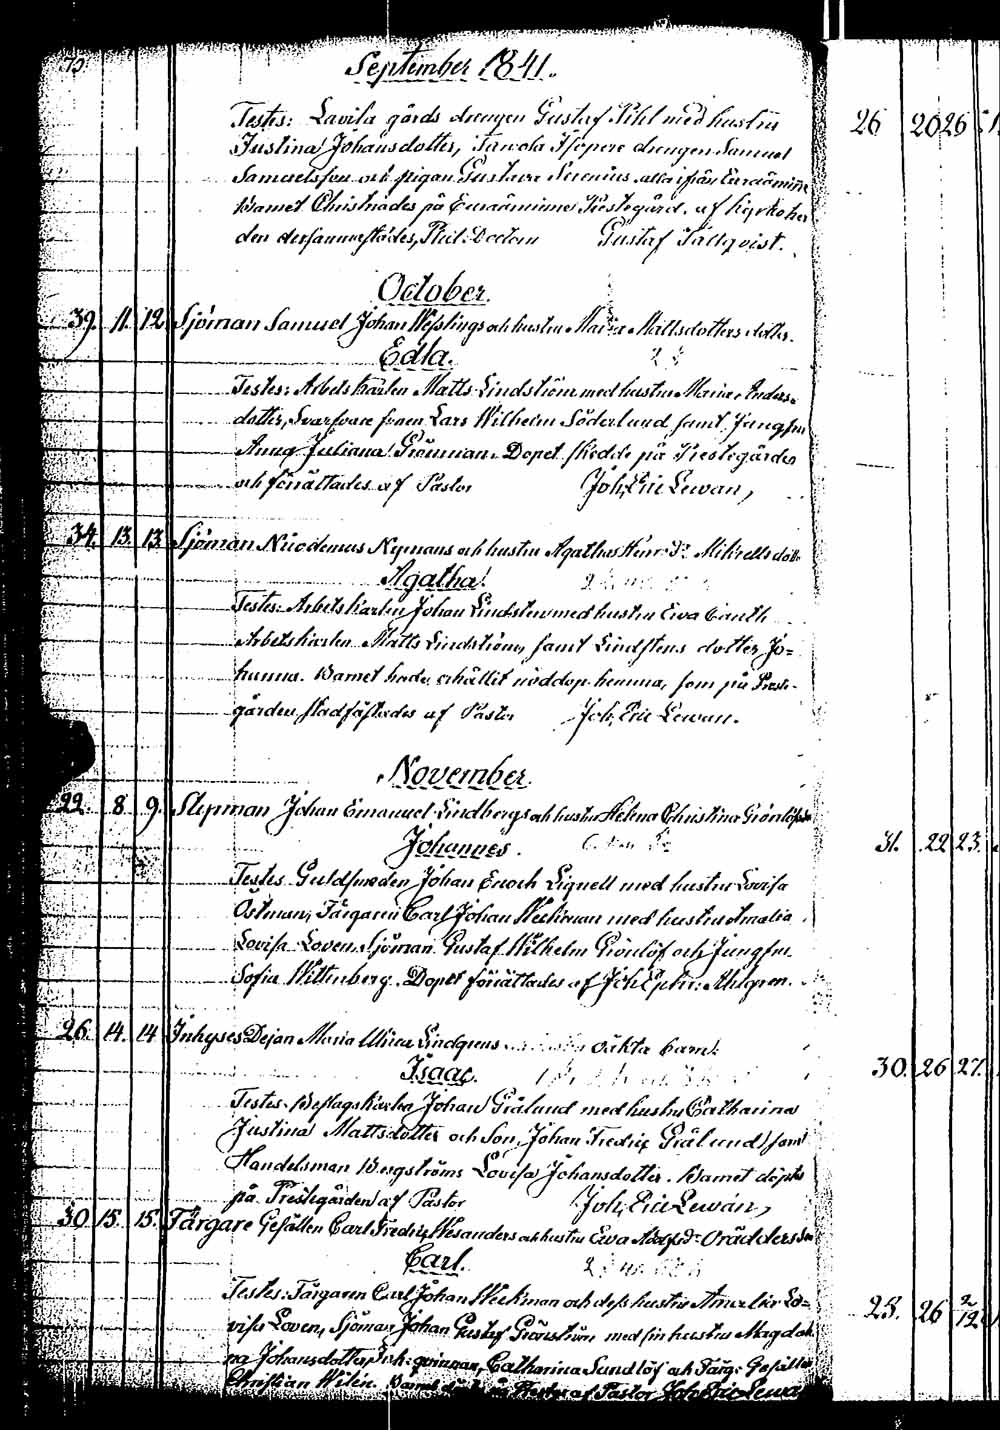 September 1841.
Testes: Lavila gårds drengen Gustaf Pihl med hustru
Justina Johansdotter, drengen Samuel
Samuelsson och pigan Gustava Serenius alla ifrån Euraåminne
Barnet Christnades på Euraåminne Prestegård, af Kyrkoher
den dersammastädes, Phil: Doctorn Gustaf Tällqvist.
October.
39. 11. 12. Sjöman Samuel Johan Wesslings och hustru Maria Mattsdotters dotter.
Edla.
Testes: Arbetskarlen Matts Lindström med hustru Maria Anders-
dotter, Svarfvare sonen Lars Wilhelm Söderlund samt Jungfru
Anna Juliana Grönman. Dopet skedde på Prestegården
och förrättades af Pastor Joh. Eric Lewan,
34. 13. 13. Sjöman Nicodemus Nymans och hustru Agathas Henr. Dr Mikrells dotter
Agatha.
Testes: Arbetskarlen Johan Lindsten med hustru Ewa
Arbetskarlen Matts Lindström, samt Lindstens dotter Jo=
hanna. Barnet hade erhållit nöddop hemma, som på Preste-
gården stadfästades af Pastor Joh. Eric Lewan.
November.
22. 8 9. Slipman Johan Emanuel Lindbergs och hustru Helena Christina Grönlöfs
Johannes.
Testes Guldsmeden Johan Enoch Lignell med hustru Lovisa
Östman, Färgaren Carl Johan Weckman med hustru Amalia
Lovisa Loven, Sjöman Gustaf Wilhelm Grönlöf och Jungfru
Sofia Wittenberg. Dopet förrättades af Joh. Ephr. Ahlgren.
26. 14. 14 Inhyses Dejan Maria Ulrica Lindgrens oäkta barn.
Isaac.
Testes. Beslagskarlen Johan Grålund med hustru Catharina
Justina Mattsdotter och Son Johan Fredric Grålund, samt
Handelsman Bergströms Lovisa Johansdotter. Barnet döptes
på Prestegården af Pastor Joh. Eric Lewan,
30 15. 15. Färgare Gesällen Carl Fredric Wesanders och hustru Ewa Adolfsdr
Carl.
Testes: Färgaren Carl Johan Weckman och dess hustru Amalia Lo=
visa Loven, Sjöman Johan Gustaf Grönström med sin hustru Magdale
na Johansdotter, qvinnan Catharina Sundlöf och Färg: Gesällen
Christian Wilén. Barnet af Pastor Joh. Eric Lewan
26 20 26
31. 22 23.
30. 26 27.
28. 26 2/12